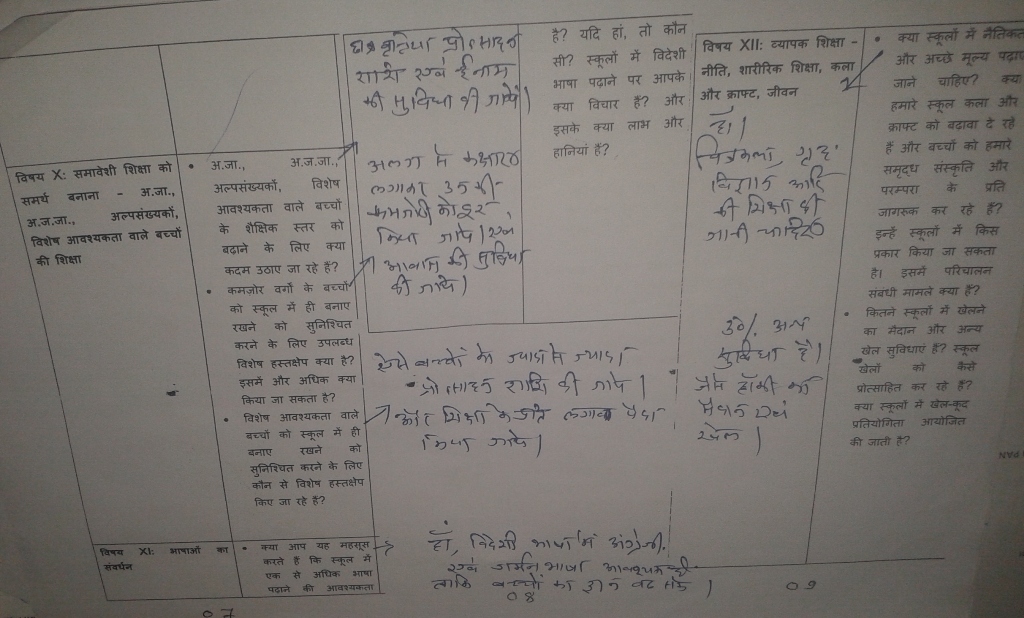 विषय X: समावेशी शिक्षा को
समर्थ बनाना - अ.जा.,
अ.ज.जा., अल्पसंख्यकों,
विशेष आवश्यकता वाले बच्चों
की शिक्षा
• अ.जा., अ.ज.जा.,
अल्पसंख्यकों, विशेष
आवश्यकता वाले बच्चों
के शैक्षिक स्तर को
बढाने के लिए क्या
कदम उठाए जा रहे हैं?
• कमज़ोर वर्गो के बच्चों
को स्कूल में ही बनाए
रखने को सुनिश्चित
करने के लिए उपलब्ध
विशेष हस्तक्षेप क्या है?
इसमें और अधिक क्या
किया जा सकता है?
• विशेष आवश्यकता वाले
बच्चों को स्कूल में ही
बनाए रखने को
सुनिश्चित करने के लिए
कौन से विशेष हस्तक्षेप
किए जा रहे हैं?
प्रोत्साहन
राशि एवं ईनाम
की सुविधा दी जाये।
अलग से
लगाकर उनकी
किया जाये।
आवास की सुविधा
दी जाये।
ऐसे बच्चों को ज्यादा से ज्यादा
प्रोत्साहन राशि दी जाये।
और शिक्षा के प्रति लगाव पैदा
किया जाये।
विषय XI: भाषाओं का
संवर्धन
• क्या आप यह महसूस
करते हैं कि स्कूल में
एक से अधिक भाषा
पढाने की आवश्यकता
हाँ, विदेशी भाषा में अंग्रेजी,
एवं जर्मन भाषा आवश्यक है
ताकि बच्चों का ज्ञान बढ सके।
07
08
है? यदि हां, तो कौन
सी? स्कूलों में विदेशी
भाषा पढाने पर आपके
क्या विचार हैं? और
इसके क्या लाभ और
हानियां हैं?
विषय XII: व्यापक शिक्षा -
नीति, शारीरिक शिक्षा, कला
और क्राफ्ट, जीवन
हाँ।
चित्रकला, गृह
विज्ञान आदि
की शिक्षा दी
जानी चाहिए
सुविधा है।
जैसे हॉकी का
मैदान एवं
खेल।
09
• क्या स्कूलों में नैतिकता
और अच्छे मूल्य पढ़ाए
जाने चाहिए? क्या
हमारे स्कूल कला और
क्राफ्ट को बढावा दे रहे
हैं और बच्चों को हमारे
समृद्ध संस्कृति और
परम्परा के प्रति
जागरूक कर रहे हैं?
इन्हें स्कूलों में किस
प्रकार किया जा सकता
है। इसमें परिचालन
संबंधी मामले क्या हैं?
• कितने स्कूलों में खेलने
का मैदान और अन्य
खेल सुविधाएं हैं? स्कूल
खेलों को कैसे
प्रोत्साहित कर रहे हैं?
क्या स्कूलों में खेल-कूद
प्रतियोगिता आयोजित
की जाती है?